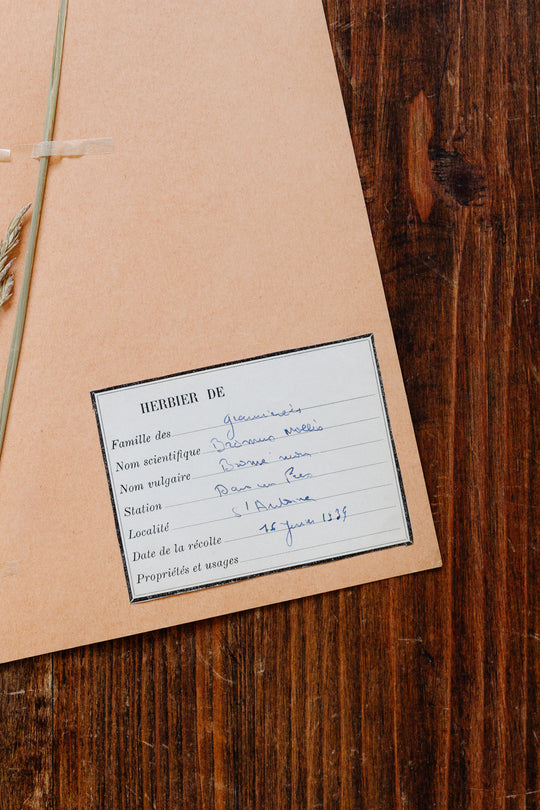 HERBIER DE
Famille des graminées
Nom scientifique Bromus Mollis
Nom vulgaire Brome mou
Station Dans un Pré
Localité St Antoine
Date de la récolte 16 juin 1939
Propriétés et usages